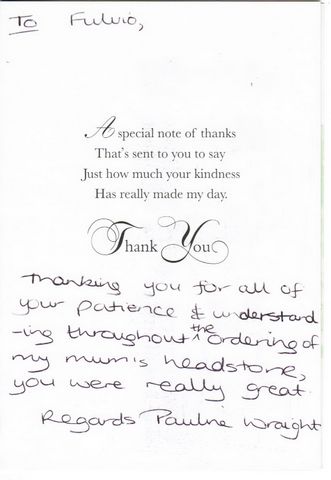 To Fulvio,
A special note of thanks
That's sent to you to say
Just how much your kindness
Has really made my day.
Thank You
Thanking you for all of
your patience & understand
-ing throughout the ordering of
my mum's headstone,
you were really great.
Regards Pauline Wraight